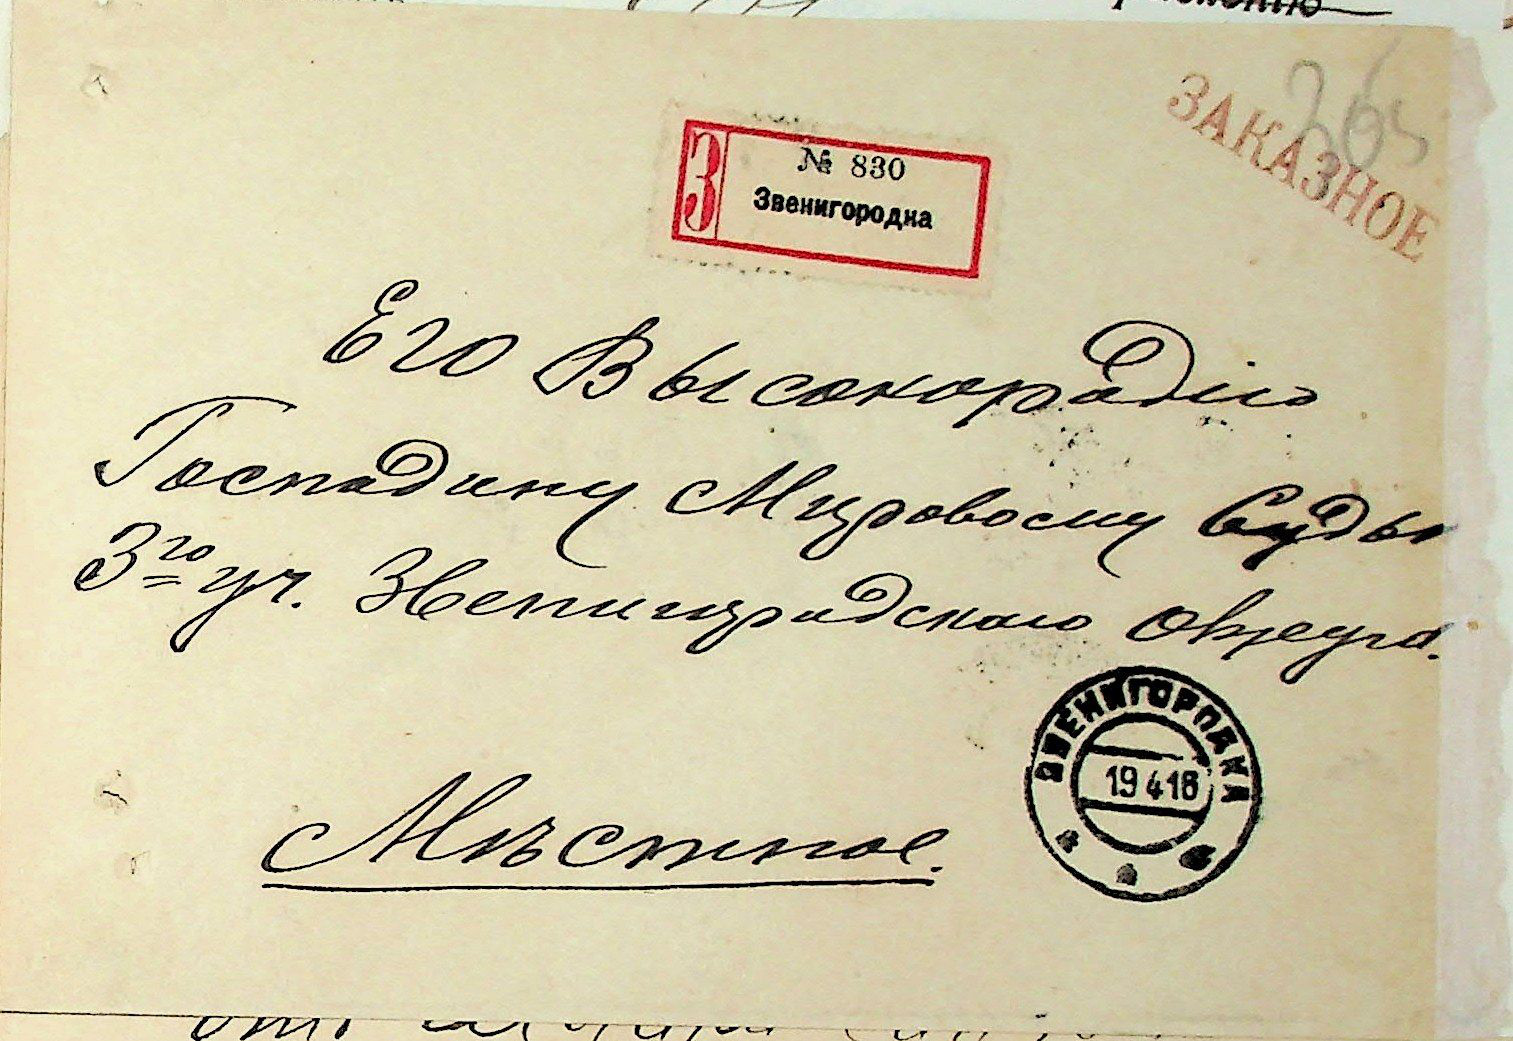 ЗАКАЗНОЕ
З
№ 830
Звенигородка
Его Высокородію
Господину Мировому Судьѣ
3го уч. Звенигородскаго округа.
ЗВЕНИГОРОДКА
19 4 18
Мѣстное.